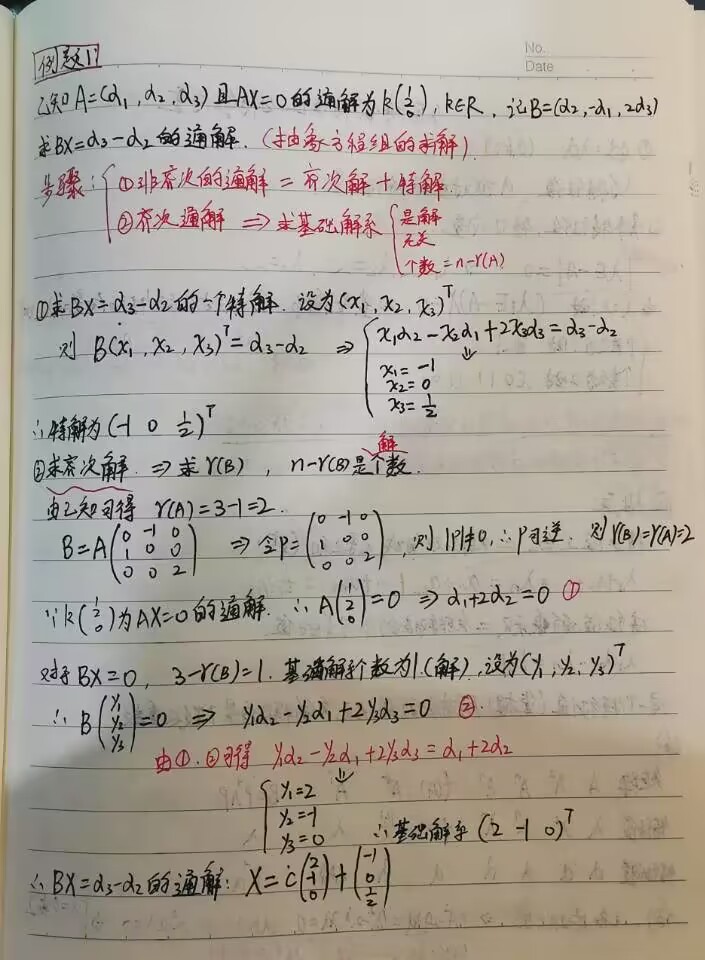 No.
Date
例题1
已知A=(α1, α2, α3) 且AX=0的通解为k(1 2 0), k∈R, 记B=(α2, -α1, 2α3)
求BX=α3-α2的通解. (抽象方程组的求解)
步骤: ①非齐次的通解 = 齐次解+特解
②齐次通解 ⇒ 求基础解系 { 是解
无关
个数=n-r(A)
①求BX=α3-α2的一个特解. 设为(x1, x2, x3)^T
则 B(x1, x2, x3)^T=α3-α2 ⇒ { x1α2-x2α1+2x3α3=α3-α2
⇓
x1=-1
x2=0
x3=1/2
∴特解为(-1 0 1/2)^T
②求齐次解 ⇒ 求r(B), n-r(B)是解个数.
由已知可得 r(A)=3-1=2.
B=A(0 -1 0; 1 0 0; 0 0 2) ⇒ 令P=(0 -1 0; 1 0 0; 0 0 2), 则|P|≠0, ∴P可逆. 则r(B)=r(A)=2
∵k(1 2 0)为AX=0的通解. ∴A(1 2 0)=0 ⇒ α1+2α2=0 ①
对于BX=0, 3-r(B)=1. 基础解系个数为1.(解), 设为(y1, y2, y3)^T
∴ B(y1 y2 y3)=0 ⇒ y1α2-y2α1+2y3α3=0 ②.
由①.②可得 y1α2-y2α1+2y3α3=α1+2α2
⇓
{ y1=2
y2=-1
y3=0 ∴基础解系(2 -1 0)^T
∴BX=α3-α2的通解: X=c(2 -1 0)+(-1 0 1/2)